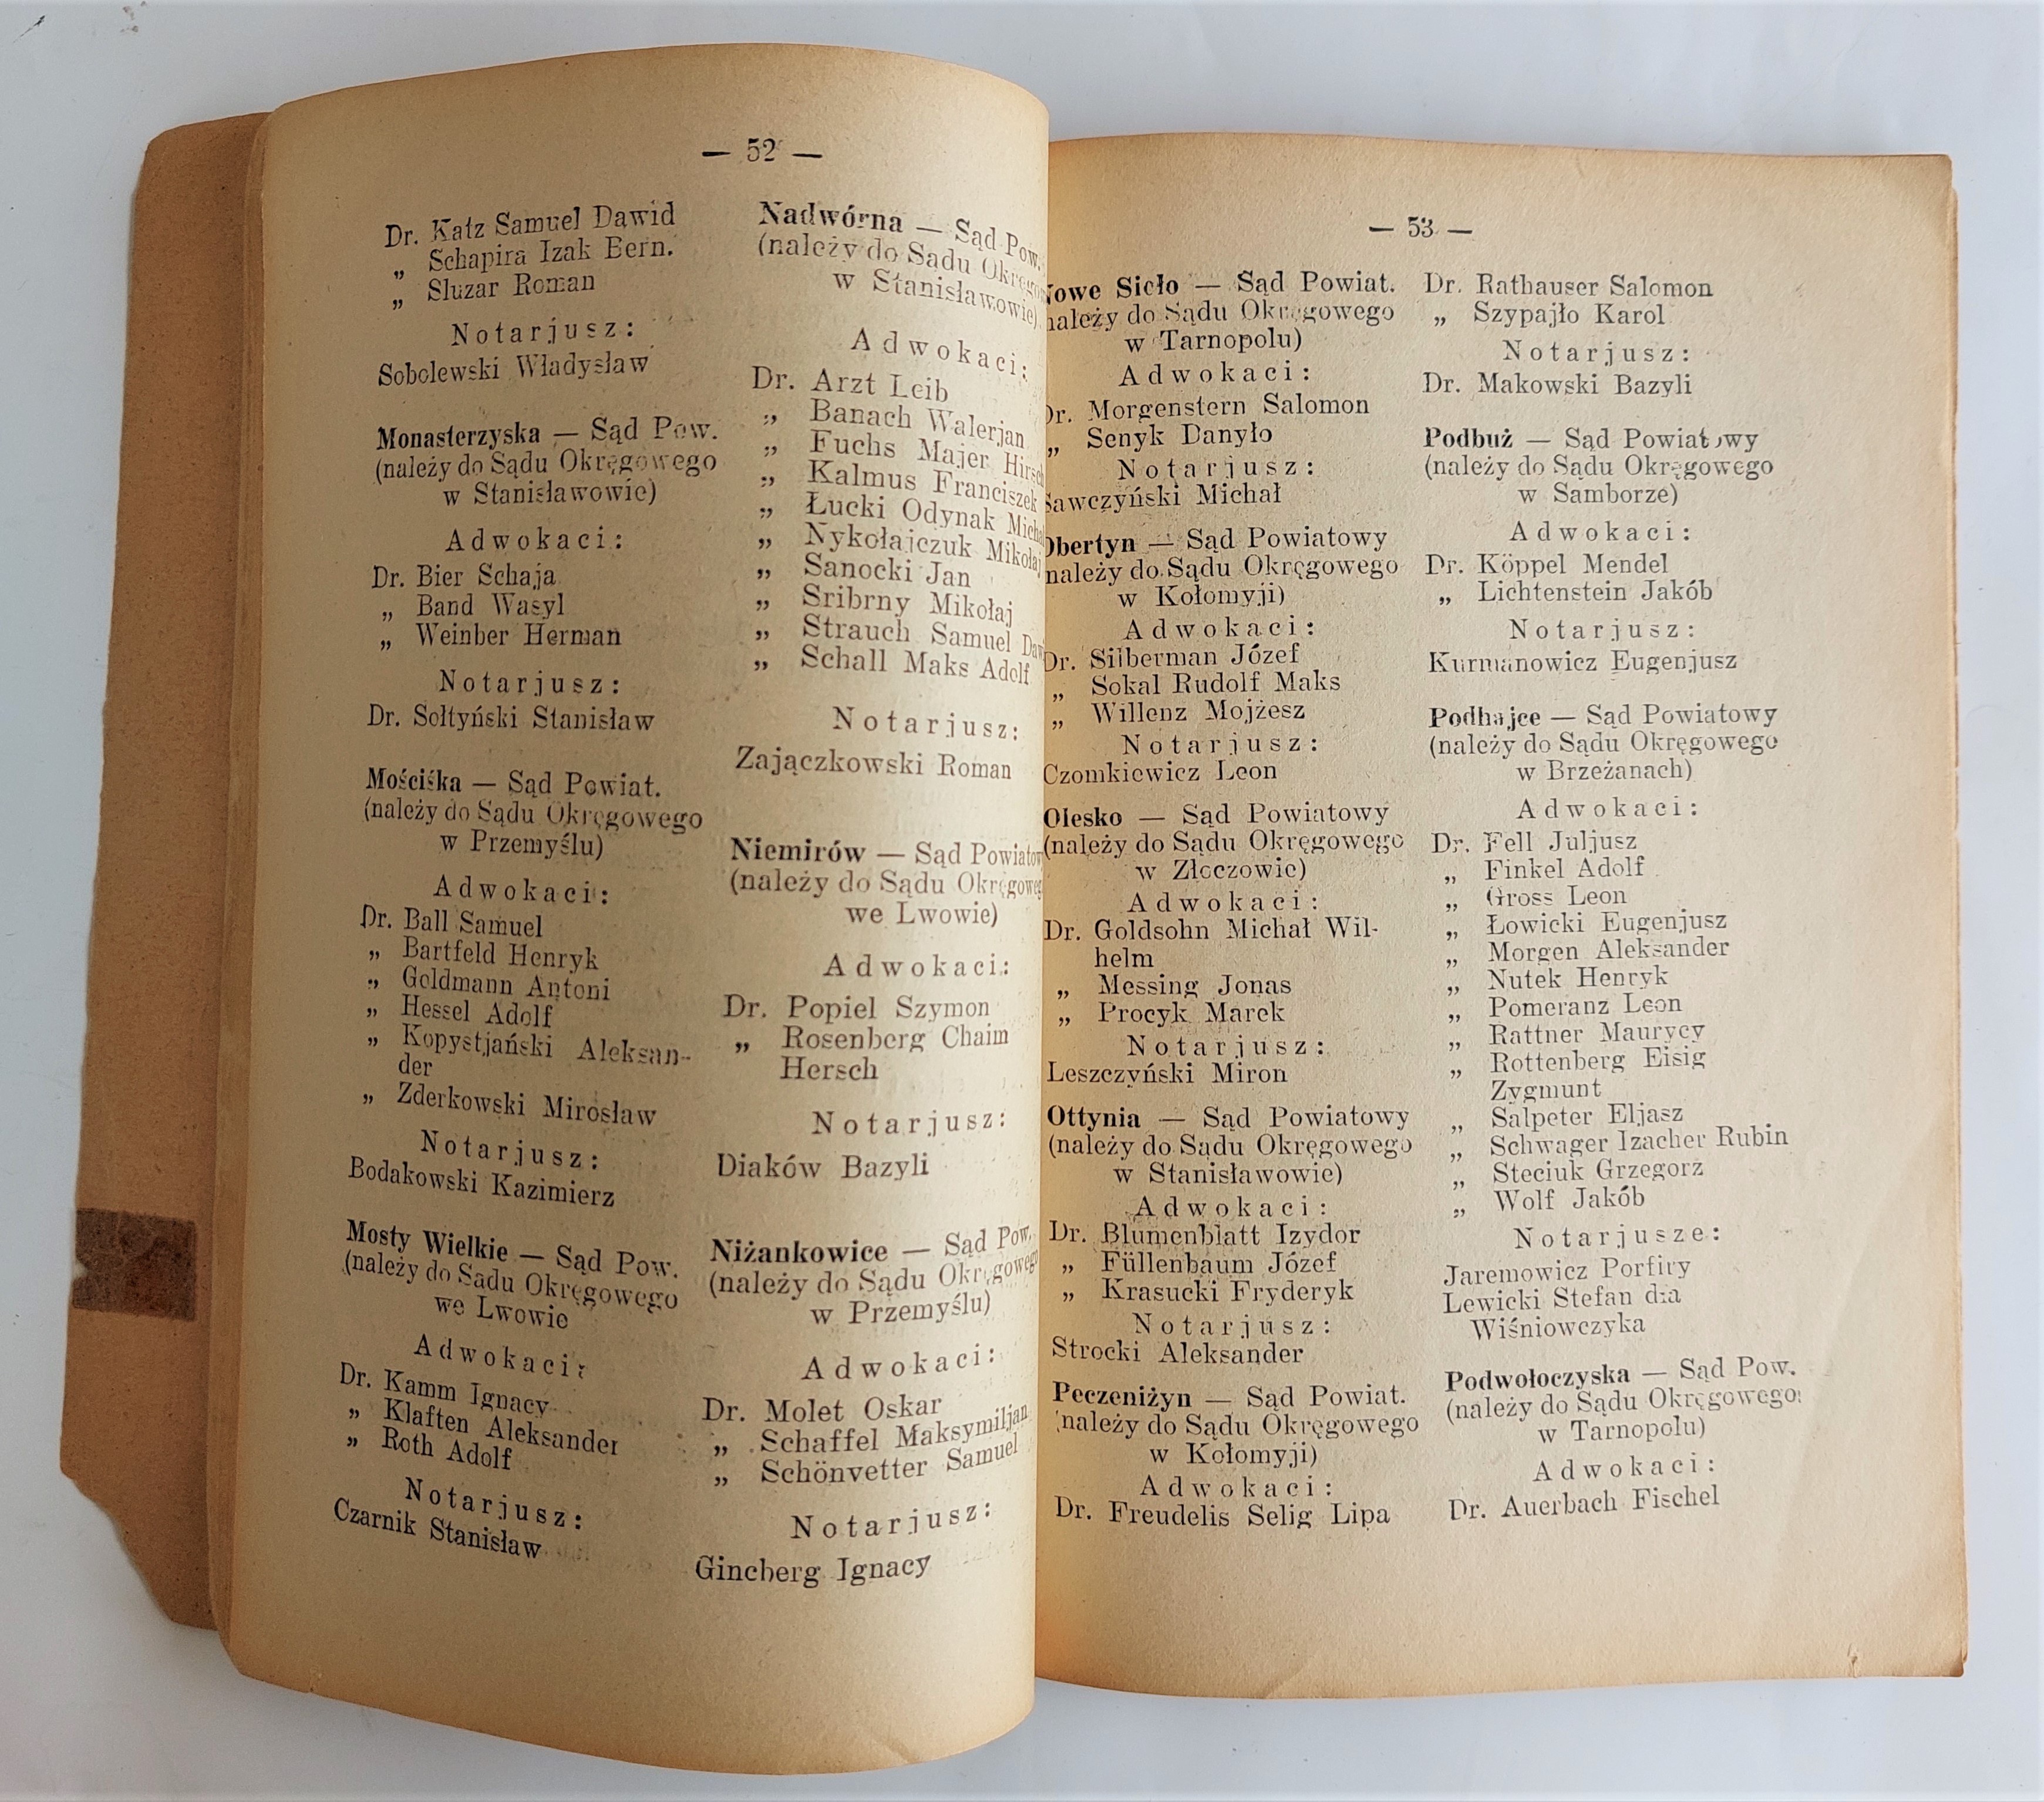 — 52 —
Dr. Katz Samuel Dawid
„ Schapira Izak Bern.
„ Sluzar Roman
Notarjusz:
Sobolewski Władysław
Monasterzyska — Sąd Pow.
(należy do Sądu Okręgowego
w Stanisławowie)
Adwokaci:
Dr. Bier Schaja
„ Band Wasyl
„ Weinber Herman
Notarjusz:
Dr. Sołtyński Stanisław
Mościśka — Sąd Powiat.
(należy do Sądu Okręgowego
w Przemyślu)
Adwokaci:
Dr. Ball Samuel
„ Bartfeld Henryk
„ Goldmann Antoni
„ Hessel Adolf
„ Kopystjański Aleksan-
der
„ Zderkowski Mirosław
Notarjusz:
Bodakowski Kazimierz
Mosty Wielkie — Sąd Pow.
(należy do Sądu Okręgowego
we Lwowie
Adwokaci:
Dr. Kamm Ignacy
„ Klaften Aleksander
„ Roth Adolf
Notarjusz:
Czarnik Stanisław
Nadwórna — Sąd Pow.
(należy do Sądu Okręgo
w Stanisławowie)
Adwokaci:
Dr. Arzt Leib
„ Banach Walerjan
„ Fuchs Majer Hirsch
„ Kalmus Franciszek
„ Łucki Odynak Micha
„ Nykołajczuk Mikołaj
„ Sanocki Jan
„ Sribrny Mikołaj
„ Strauch Samuel Daw
„ Schall Maks Adolf
Notarjusz:
Zajączkowski Roman
Niemirów — Sąd Powiatow
(należy do Sądu Okręgoweg
we Lwowie)
Adwokaci:
Dr. Popiel Szymon
„ Rosenberg Chaim
Hersch
Notarjusz:
Diaków Bazyli
Niżankowice — Sąd Pow.
(należy do Sądu Okręgowego
w Przemyślu)
Adwokaci:
Dr. Molet Oskar
„ Schaffel Maksymiljan
„ Schönvetter Samuel
Notarjusz:
Gincberg Ignacy
— 53 —
Nowe Sioło — Sąd Powiat.
należy do Sądu Okręgowego
w Tarnopolu)
Adwokaci:
Dr. Morgenstern Salomon
„ Senyk Danyło
Notarjusz:
Sawczyński Michał
Obertyn — Sąd Powiatowy
należy do Sądu Okręgowego
w Kołomyji)
Adwokaci:
Dr. Silberman Józef
„ Sokal Rudolf Maks
„ Willenz Mojżesz
Notarjusz:
Czomkiewicz Leon
Olesko — Sąd Powiatowy
(należy do Sądu Okręgowego
w Złoczowie)
Adwokaci:
Dr. Goldsohn Michał Wil-
helm
„ Messing Jonas
„ Procyk Marek
Notarjusz:
Leszczyński Miron
Ottynia — Sąd Powiatowy
(należy do Sądu Okręgowego
w Stanisławowie)
Adwokaci:
Dr. Blumenblatt Izydor
„ Füllenbaum Józef
„ Krasucki Fryderyk
Notarjusz:
Strocki Aleksander
Peczeniżyn — Sąd Powiat.
(należy do Sądu Okręgowego
w Kołomyji)
Adwokaci:
Dr. Freudelis Selig Lipa
Dr. Rathauser Salomon
„ Szypajło Karol
Notarjusz:
Dr. Makowski Bazyli
Podbuż — Sąd Powiatowy
(należy do Sądu Okręgowego
w Samborze)
Adwokaci:
Dr. Köppel Mendel
„ Lichtenstein Jakób
Notarjusz:
Kurmanowicz Eugenjusz
Podhajce — Sąd Powiatowy
(należy do Sądu Okręgowego
w Brzeżanach)
Adwokaci:
Dr. Fell Juljusz
„ Finkel Adolf
„ Gross Leon
„ Łowicki Eugenjusz
„ Morgen Aleksander
„ Nutek Henryk
„ Pomeranz Leon
„ Rattner Maurycy
„ Rottenberg Eisig
Zygmunt
„ Salpeter Eljasz
„ Schwager Izacher Rubin
„ Steciuk Grzegorz
„ Wolf Jakób
Notarjusze:
Jaremowicz Porfiry
Lewicki Stefan dla
Wiśniowczyka
Podwołoczyska — Sąd Pow.
(należy do Sądu Okręgowego
w Tarnopolu)
Adwokaci:
Dr. Auerbach Fischel